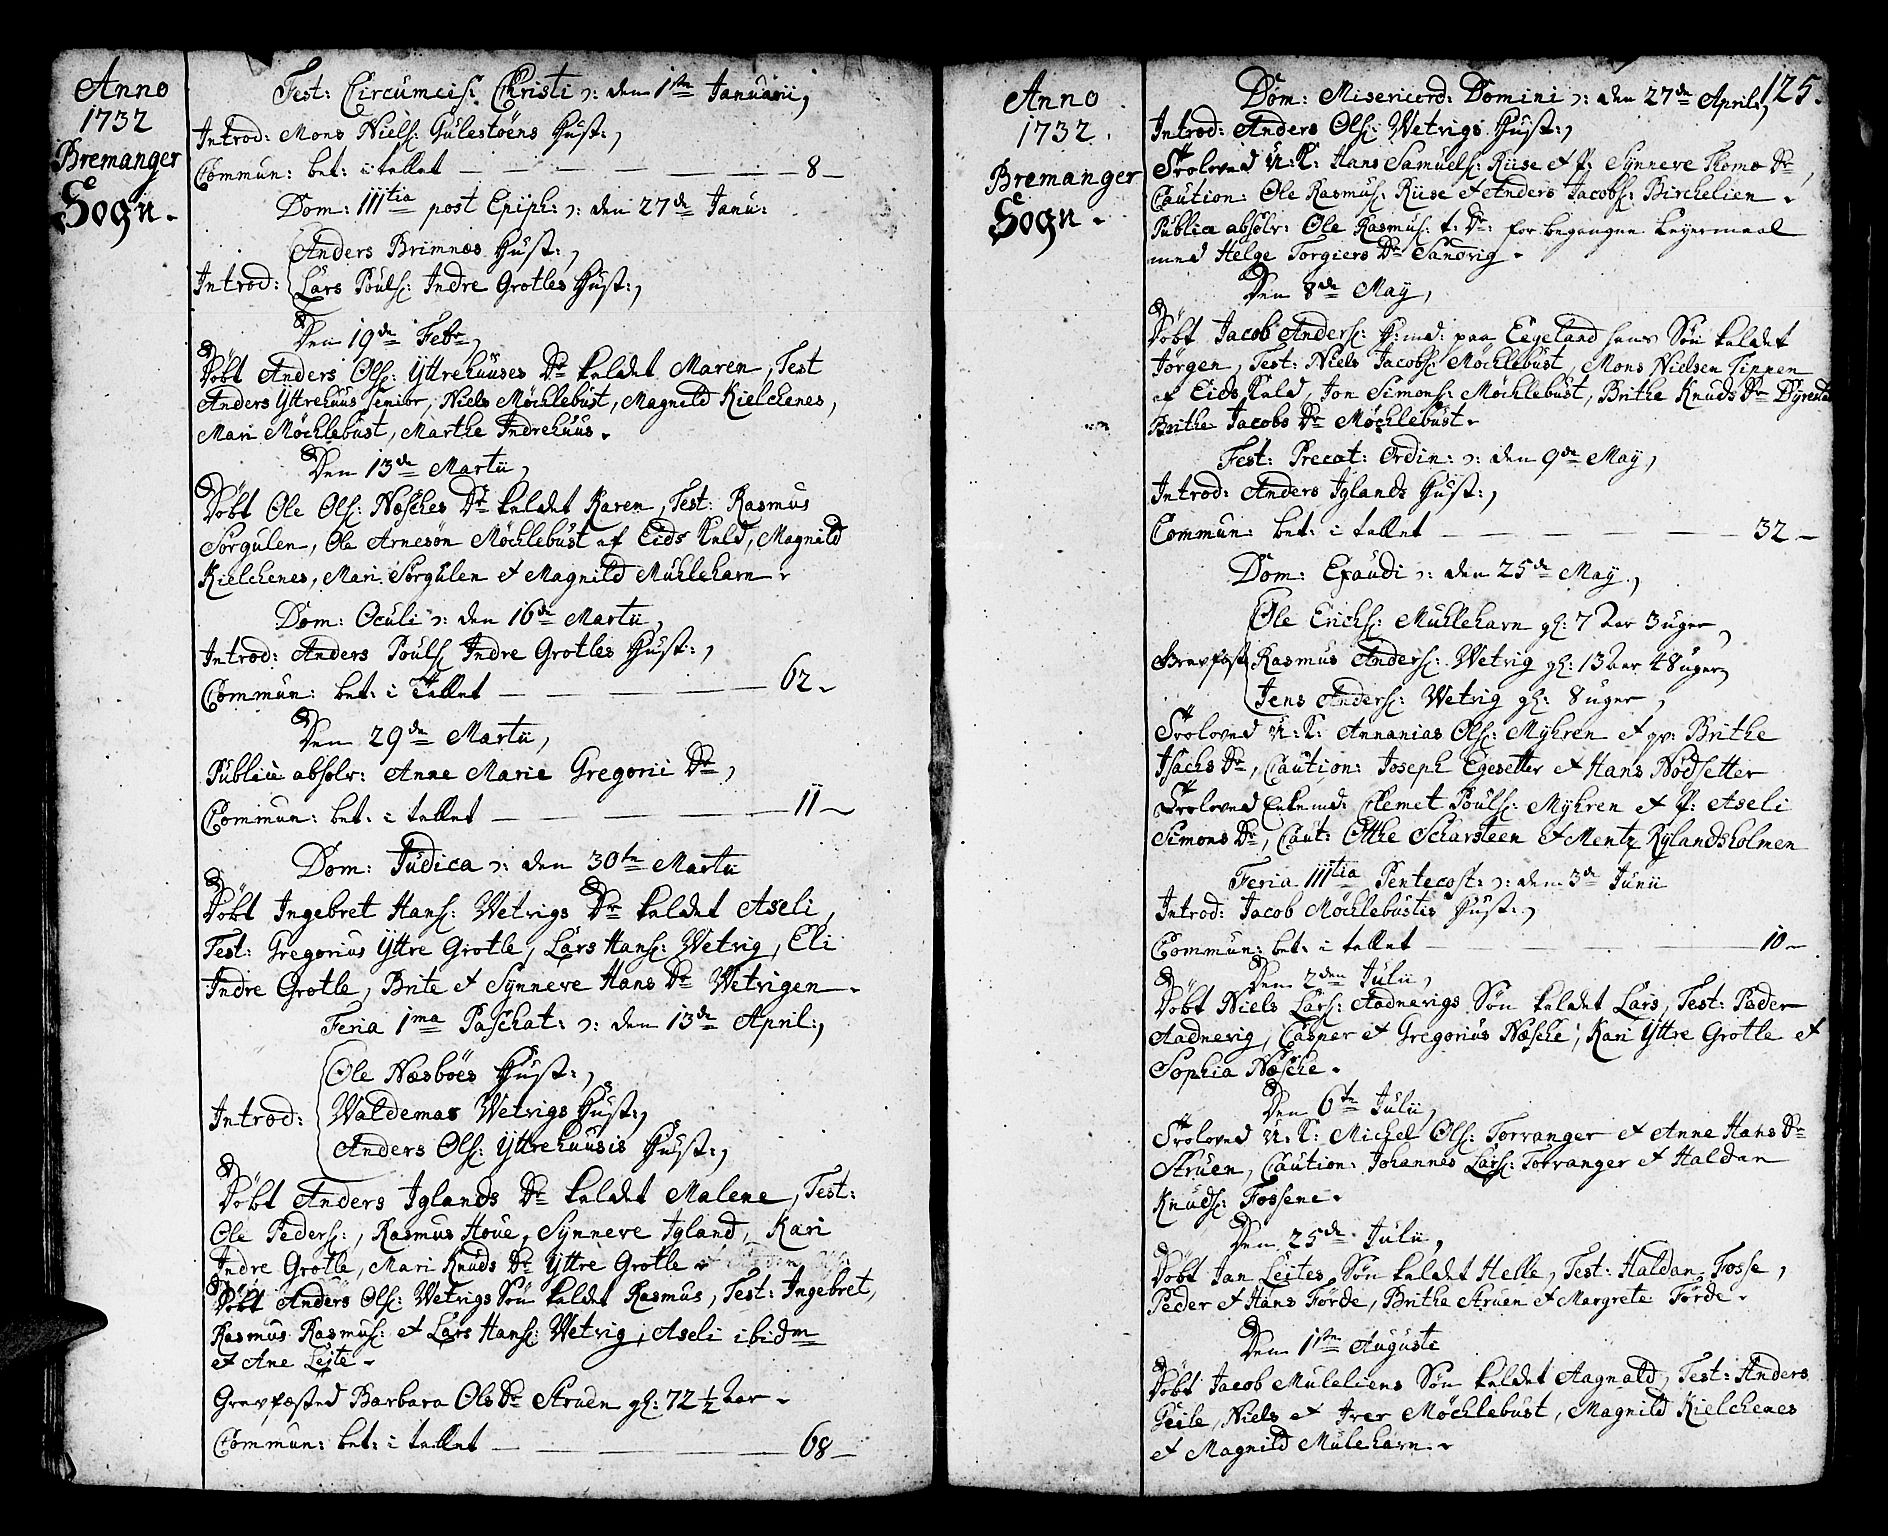 Anno
1732
Bremanger
Sogn.
Fest: Circumcis: Christi ɔ: den 1ste Januarii,
Introd: Mons Niels: Gulestöens Hust:,
Commun: bet: i tallet — 8 —
Dom: IIItia post Epiph: ɔ: den 27de Janu:
Anders Brimnæs Hust:,
Introd: Lars Pouls: Indre Grotles Hust:,
Den 19de Febr,
Döbt Anders Ols: Yttrehuuses Dr kaldet Maren, Test
Anders Yttrehuus Senior, Niels Möchlebust, Magnild Kielchenes,
Mari Möchlebust, Marthe Indrehuus.
Den 13de Martii,
Döbt Ole Ols: Næsches Dr kaldet Karen, Test: Rasmus
Sörgulen, Ole Arnesön Möchlebust af Eids Præld, Magnild
Kielchenes, Mari Sörgulen et Magnild Muhleharn.
Dom: Oculi ɔ: den 16de Martii,
Introd: Anders Pouls: Indre Grotles Hust:,
Commun: bet: i Tallet — 62 —
Den 29de Martii,
Publicè absolv: Anne Marie Gregorii Dr,
Commun: bet: i tallet — 11 —
Dom: Judica ɔ: den 30te Martii
Döbt Ingebret Hans: Wetvigs Dr kaldet Aseli,
Test: Gregorius Yttre Grotle, Lars Hans: Wetvig, Eli
Indre Grotle, Brite et Synneve Hans Dr Wetvigen.
Feria 1ma Paschat: ɔ: den 13de April:,
Ole Næsböes Hust:,
Introd: Waldemas Wetvigs Hust:,
Anders Ols: Yttrehuusis Hust:,
Döbt Anders Iglands Dr kaldet Malene, Test:
Ole Peders:, Rasmus Houe, Synneve Igland, Kari
Indre Grotle, Mari Knuds Dr Yttre Grotle
Döbt Anders Ols: Wetvigs Sön kaldet Rasmus, Test: Ingebret,
Rasmus Rasmus: et Lars Hans: Wetvig, Aseli ibidm
et Ane Leite.
Gravfæsted Barbara Ols Dr Struen gl: 72 ½ Aar.
Commun: bet: i tallet — 68 —
Anno
1732.
Bremanger
Sogn.
125.
Dom: Misericord: Domini ɔ: den 27de April:,
Introd: Anders Ols: Wetvigs Hust:,
Troloved U: K: Hans Samuels: Riise et P: Synneve Thomæ Dr,
Caution: Ole Rasmus: Riise et Anders Jacobs: Birchelien.
Publicè absolv: Ole Rasmus: t: Dr: for begangne Leyermaal
med Helge Torgiers Dr Sandvig.
Den 8de May,
Döbt Jacob Anders: H:md: paa Eegeland hans Sön kaldet
Jörgen, Test: Niels Jacobs: Möchlebust, Mons Nielsen Tinnen
af Eids Præld, Jon Simons: Möchlebust, Brithe Knuds Dr Dyrestad
Brithe Jacobs Dr Möchlebust.
Fest: Precat: Ordin: ɔ: den 9de May,
Introd: Anders Iglands Hust:,
Commun: bet: i tallet — 32 —
Dom: Exaudi ɔ: den 25de May,
Ole Erichs: Muhleharn gl: 7 Aar 3 uger,
Gravfæst: Rasmus Anders: Wetvig gl: 13 Aar 48 uger,
Jens Anders: Wetvig gl: 8 uger,
Troloved U: K: Annanias Ols: Myhren et qv: Brithe
Isachs Dr, Caution: Joseph Egesetter et Hans Nödsetter
Troloved Enkemd: Clemet Pouls: Myhren et P: Aseli
Simons Dr, Caut: Otthe Scharsteen et Mentz Rylandsholmen
Feria IIItia Pentecost: ɔ: den 3de Junii
Introd: Jacob Möchlebustis Hust:,
Commun: bet: i tallet — 10 —
Den 2den Julii,
Döbt Niels Lars: Aadnevigs Sön kaldet Lars, Test: Peder
Aadnevig, Casper et Gregorius Næsche, Kari Yttre Grotle et
Sophia Næsche.
Den 6te Julii,
Troloved U: K: Michel Ols: Torranger et Anne Hans Dr
Struen, Caution: Johannes Lars: Torranger et Haldan
Knuds: Fossene.
Den 25de Julii,
Döbt Jan Leites Sön kaldet Helle, Test: Haldan Fosse,
Peder et Hans Förde, Brithe Struen et Margrete Förde.
Den 1ste Augusti
Döbt Jacob Muleliens Sön kaldet Aagnald, Test: Anders
Geile, Niels et Iver Möchlebust, Magnild Kielchenes
et Magnild Muleharn.